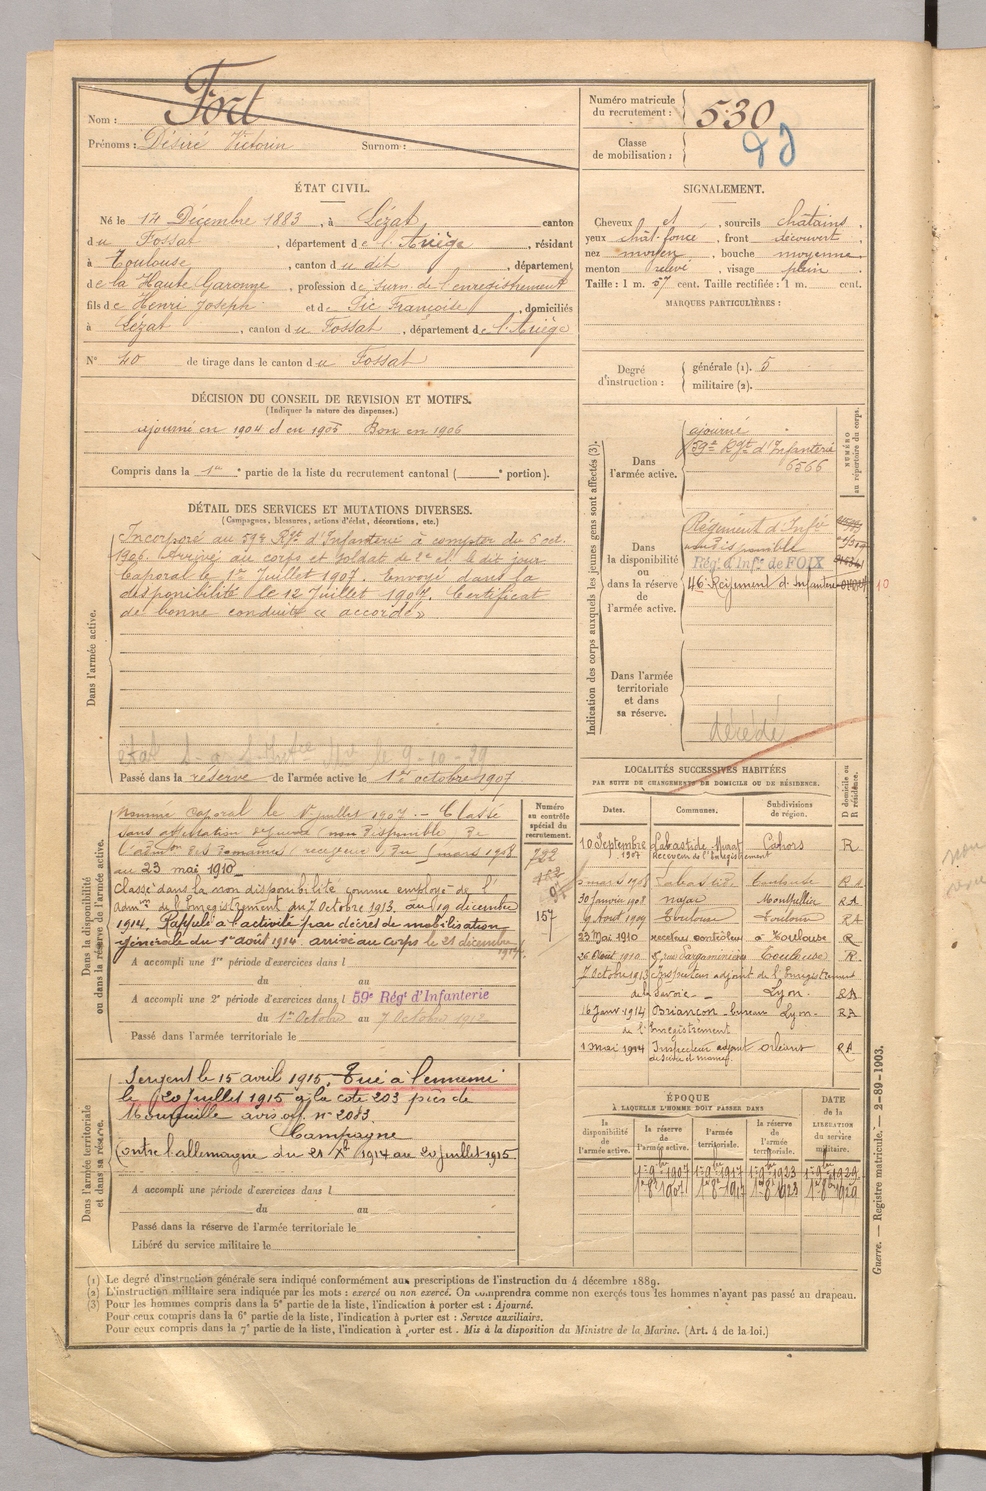 Nom : Fort
Prénoms : Désiré Victorin Surnom :
ÉTAT CIVIL.
Né le 14 Décembre 1883, à Lézat, canton
du Fossat, département de l'Ariège, résidant
à Toulouse, canton du dit, département
de la Haute Garonne, profession de surn. de l'enregistrement
fils de Henri Joseph et de Sic Françoise, domiciliés
à Lézat, canton du Fossat, département de l'Ariège
N° 40 de tirage dans le canton du Fossat
DÉCISION DU CONSEIL DE REVISION ET MOTIFS.
(Indiquer la nature des dispenses.)
ajourné en 1904 et en 1905. Bon en 1906
Compris dans la 1re partie de la liste du recrutement cantonal ( ° portion).
DÉTAIL DES SERVICES ET MUTATIONS DIVERSES.
(Campagnes, blessures, actions d'éclat, décorations, etc.)
Dans l'armée active.
Incorporé au 59e Rgt d'Infanterie à compter du 6 oct.
1906. Arrivé au corps et soldat de 2e cl. le dit jour
Caporal le 1er Juillet 1907. Envoyé dans la
disponibilité le 12 Juillet 1907. Certificat
de bonne conduite « accordé »
le 9-10-29
Passé dans la réserve de l'armée active le 1er octobre 1907.
Dans la disponibilité
ou dans la réserve de l'armée active.
Nommé caporal le 1er juillet 1907. - Classé
sans affectation (non disponible) de
l'adm on des Domaines (receveur) du 5 mars 1908
au 23 mai 1910
Classé dans la non disponibilité comme employé de l'
admon de l'Enregistrement du 7 Octobre 1913. au 19 décembre
1914. Rappelé à l'activité par décret de mobilisation
générale du 1er août 1914. arrivé au corps le 21 décembre
1914.
A accompli une 1re période d'exercices dans l
du au
A accompli une 2e période d'exercices dans l 59e Rég' d'Infanterie
du 1er Octobre au 7 Octobre 1912
Passé dans l'armée territoriale le
Numéro
au contrôle
spécial du
recrutement.
722
152
157
Dans l'armée territoriale
et dans sa réserve.
Sergent le 15 avril 1915. Tué à l'ennemi
le 20 Juillet 1915 à la cote 203 près de
avis off. n° 2083.
Campagne
Contre l'allemagne du 21 Xbre 1914 au 20 juillet 1915.
A accompli une période d'exercices dans l
du au
Passé dans la réserve de l'armée territoriale le
Libéré du service militaire le
Numéro matricule
du recrutement : 530
Classe
de mobilisation :
SIGNALEMENT.
Cheveux et, sourcils châtains,
yeux chât. foncé, front découvert,
nez moyen, bouche moyenne,
menton relevé, visage plein.
Taille : 1 m. 57 cent. Taille rectifiée : 1 m. cent.
MARQUES PARTICULIÈRES :
Degré
d'instruction :
générale (1). 5
militaire (2).
Indication des corps auxquels les jeunes gens sont affectés (3).
NUMÉRO
au répertoire du corps.
Dans
l'armée active.
ajourné
59e Rgt d'Infanterie
6566
Dans
la disponibilité
ou
dans la réserve
de
l'armée active.
Régiment d'Infie
non disponible
Rég. d'Infie de FOIX
46 Régiment d'Infanterie
10
Dans l'armée
territoriale
et dans
sa réserve.
décédé
LOCALITÉS SUCCESSIVES HABITÉES
PAR SUITE DE CHANGEMENTS DE DOMICILE OU DE RÉSIDENCE.
D domicile ou
R résidence.
Dates. Communes. Subdivisions de région.
10 Septembre 1907 Labastide Murat Cahors R
Receveur de l'Enregistrement
5 mars 1908 Labastide Toulouse R A
30 Janvier 1908 najac Montpellier R A
9 Août 1909 Toulouse Toulouse R A
23 Mai 1910 receveur contrôleur à Toulouse R
26 Août 1910 5 rue Pargaminières Toulouse R.
7 Octobre 1913 Inspecteur adjoint de l'Enregistrement
de la Savoie - Lyon. R A
16 Janv 1914 Briançon - bureau Lyon. R A
de l'Enregistrement
1 Mai 1914 Inspecteur adjoint Orléans R A
ÉPOQUE
À LAQUELLE L'HOMME DOIT PASSER DANS
DATE
de la
LIBÉRATION
du service
militaire.
la
disponibilité
de
l'armée active.
la réserve
de
l'armée active.
l'armée
territoriale.
la réserve
de
l'armée
territoriale.
1er 9bre 1907 1er 9bre 1917 1er 9bre 1923 1er 9bre 1929
1er 8bre 1907 1er 8bre 1917 1er 8bre 1923 1er 8bre 1929
Guerre. — Registre matricule. — 2-89-1903.
(1) Le degré d'instruction générale sera indiqué conformément aux prescriptions de l'instruction du 4 décembre 1889.
(2) L'instruction militaire sera indiquée par les mots : exercé ou non exercé. On comprendra comme non exercés tous les hommes n'ayant pas passé au drapeau.
(3) Pour les hommes compris dans la 5e partie de la liste, l'indication à porter est : Ajourné.
Pour ceux compris dans la 6e partie de la liste, l'indication à porter est : Service auxiliaire.
Pour ceux compris dans la 7e partie de la liste, l'indication à porter est. Mis à la disposition du Ministre de la Marine. (Art. 4 de la loi.)